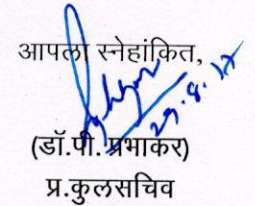 आपला स्नेहांकित,
29.8.17
(डॉ.पी. प्रभाकर)
प्र.कुलसचिव